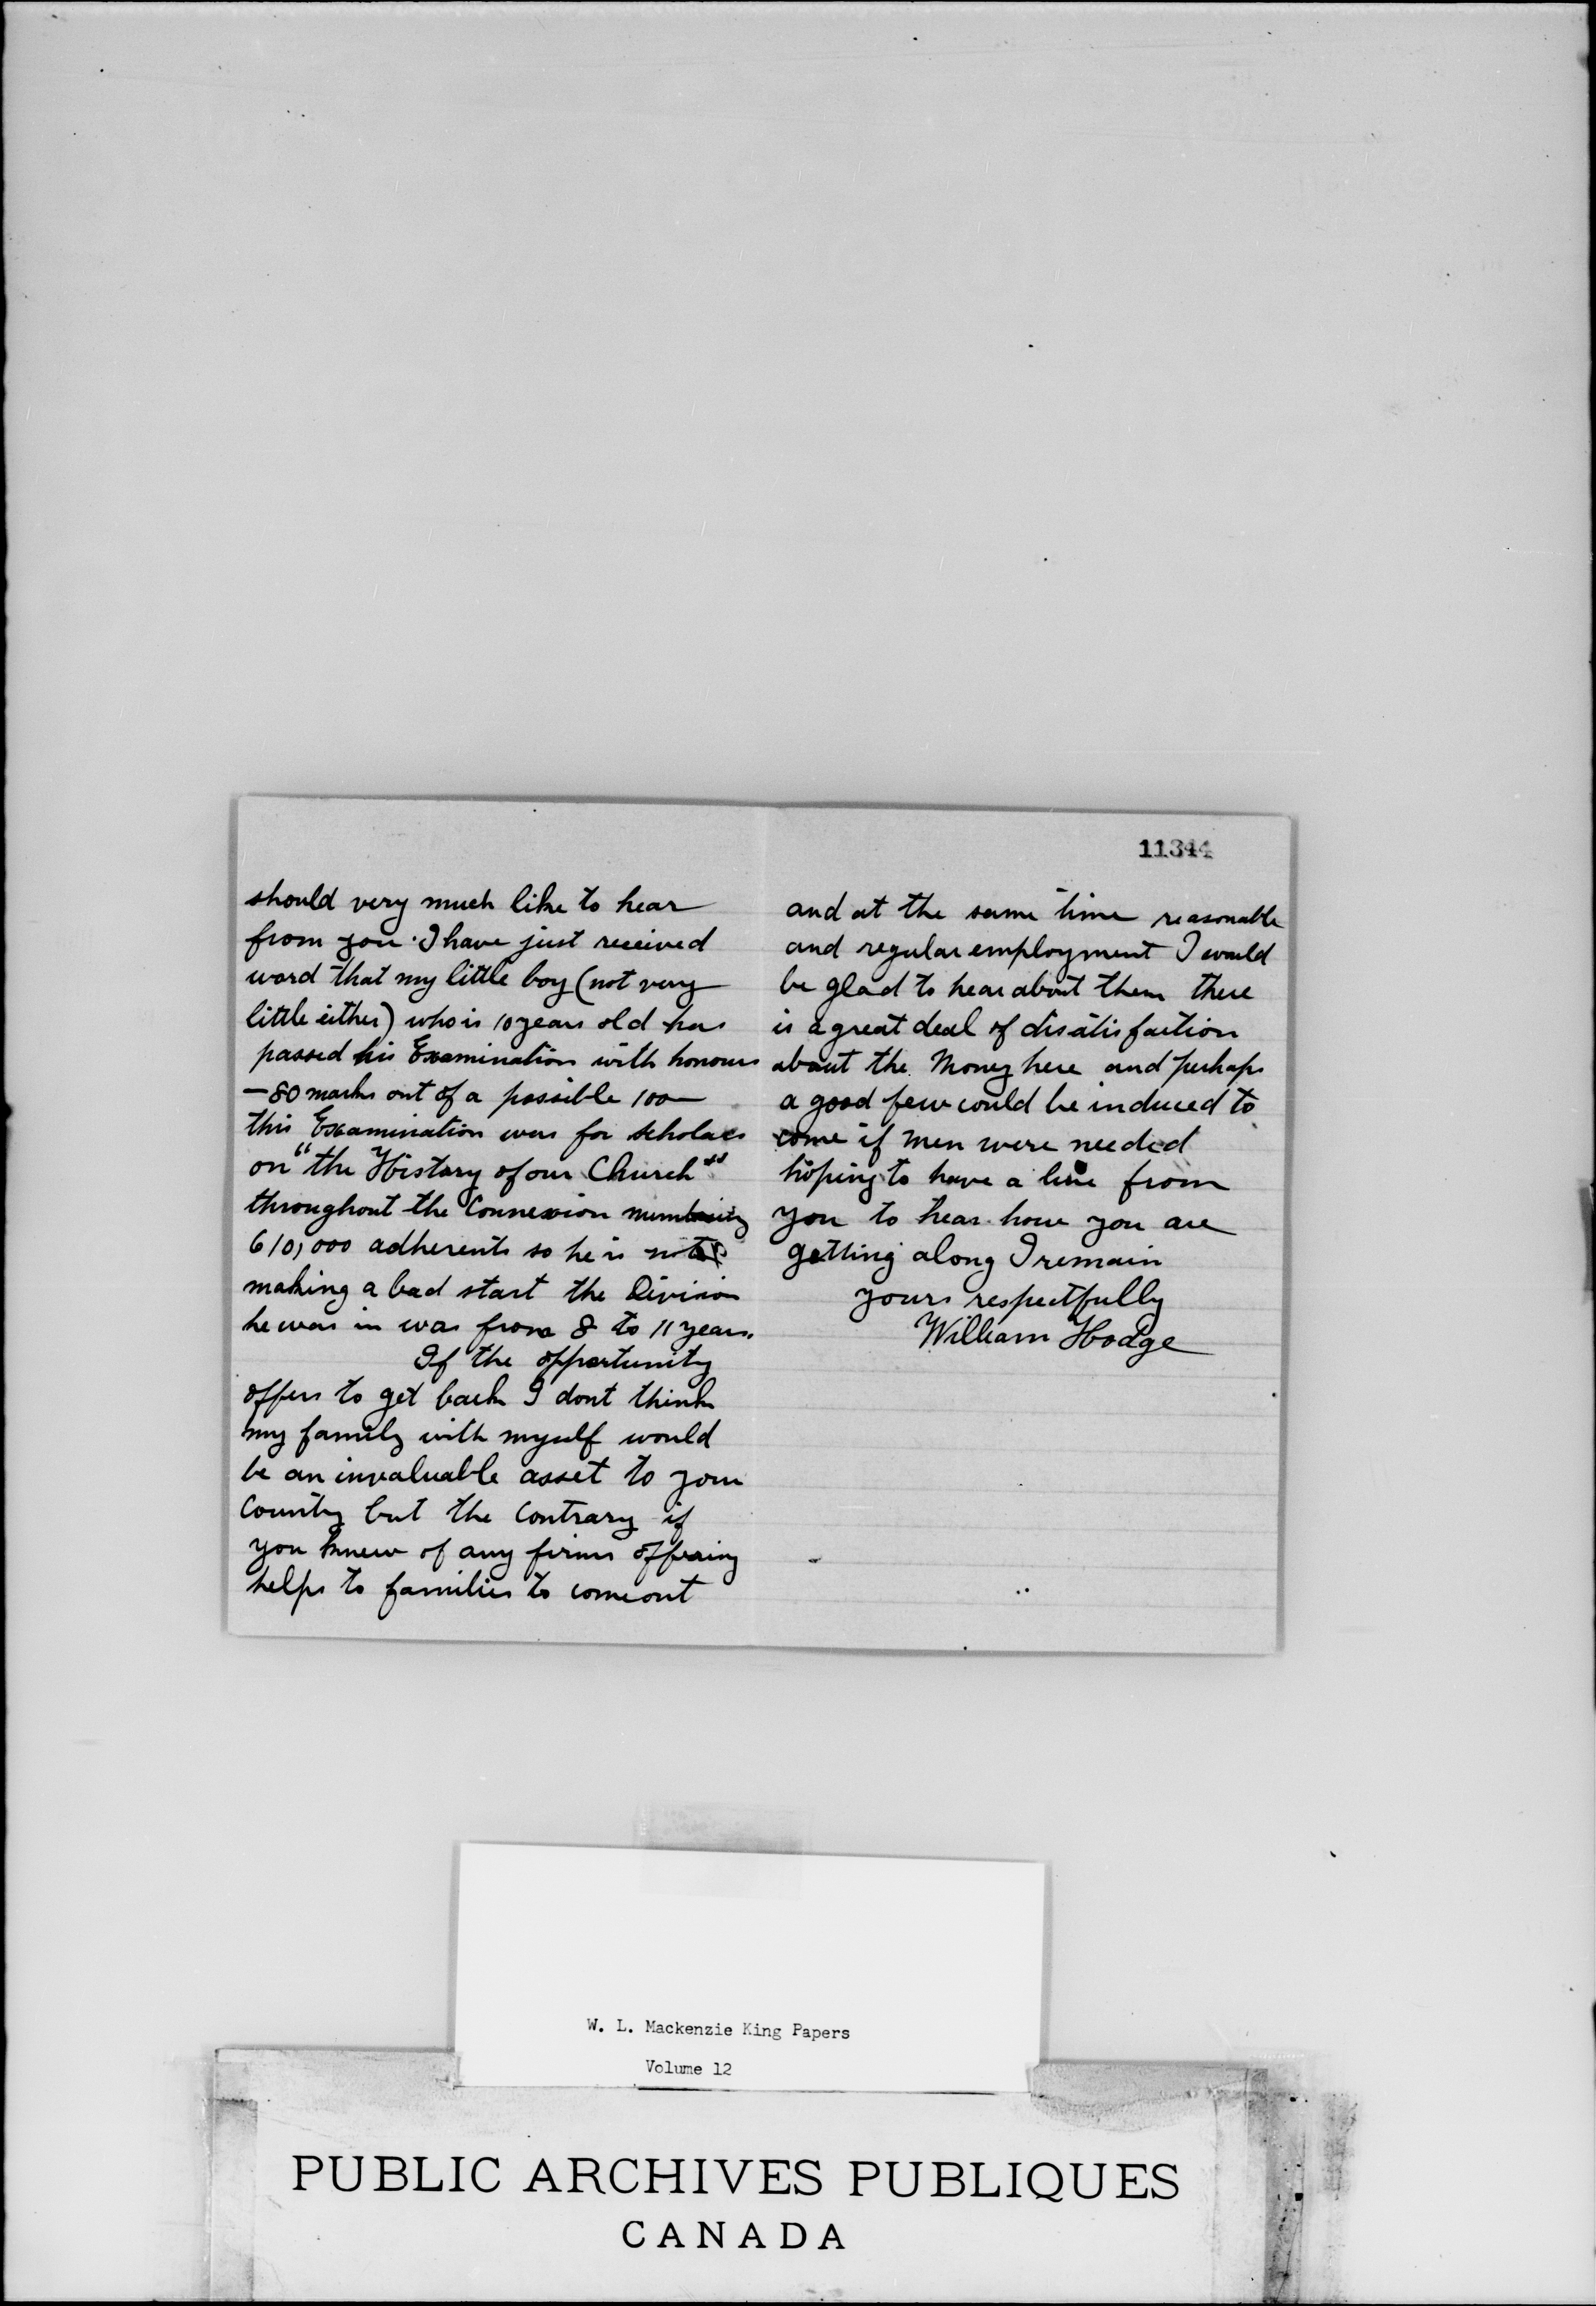 should very much like to hear
from you. I have just received
word that my little boy (not very
little either) who is 10 years old has
passed his Examination with honours
— 80 marks out of a possible 100 —
this Examination was for scholars
on "the History of our Church"
throughout the Connexion numbering
610,000 adherents so he is not
making a bad start the Division
he was in was from 8 to 11 years.
If the opportunity
offers to get back I dont think
my family with myself would
be an invaluable asset to your
Country but the Contrary if
you knew of any firms offering
helps to families to come out
11344
and at the same time reasonable
and regular employment I would
be glad to hear about them there
is a great deal of disatisfaction
about the Money here and perhaps
a good few could be induced to
come if men were needed
hoping to have a line from
you to hear how you are
getting along I remain
yours respectfully
William Hodge
W. L. Mackenzie King Papers
Volume 12
PUBLIC ARCHIVES PUBLIQUES
CANADA